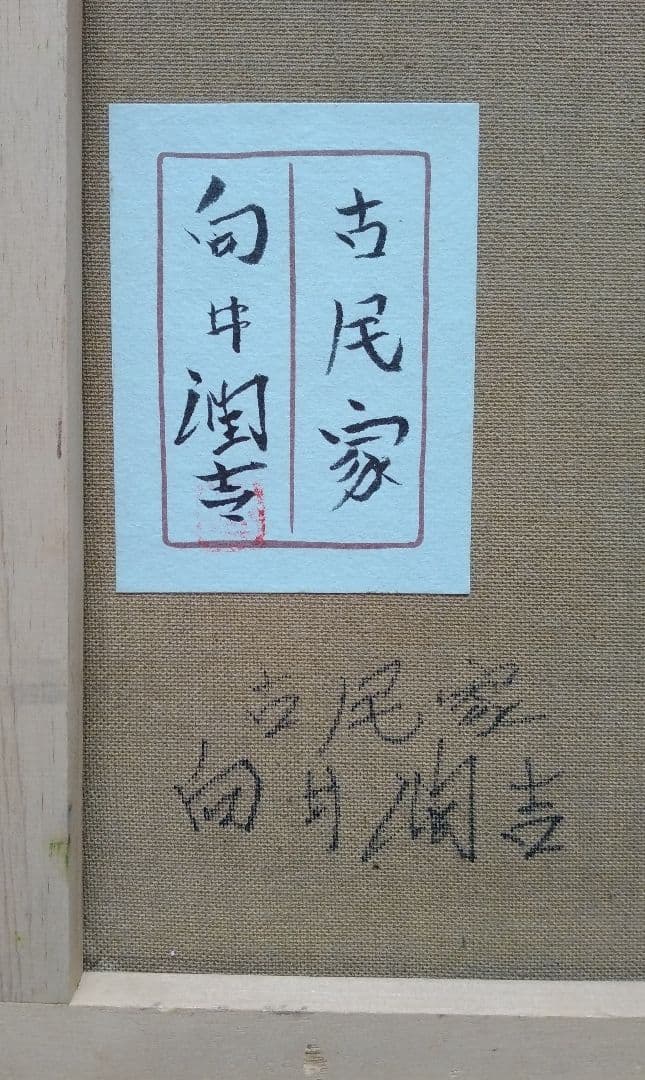 古民家
向井潤吉
古民家
向井潤吉